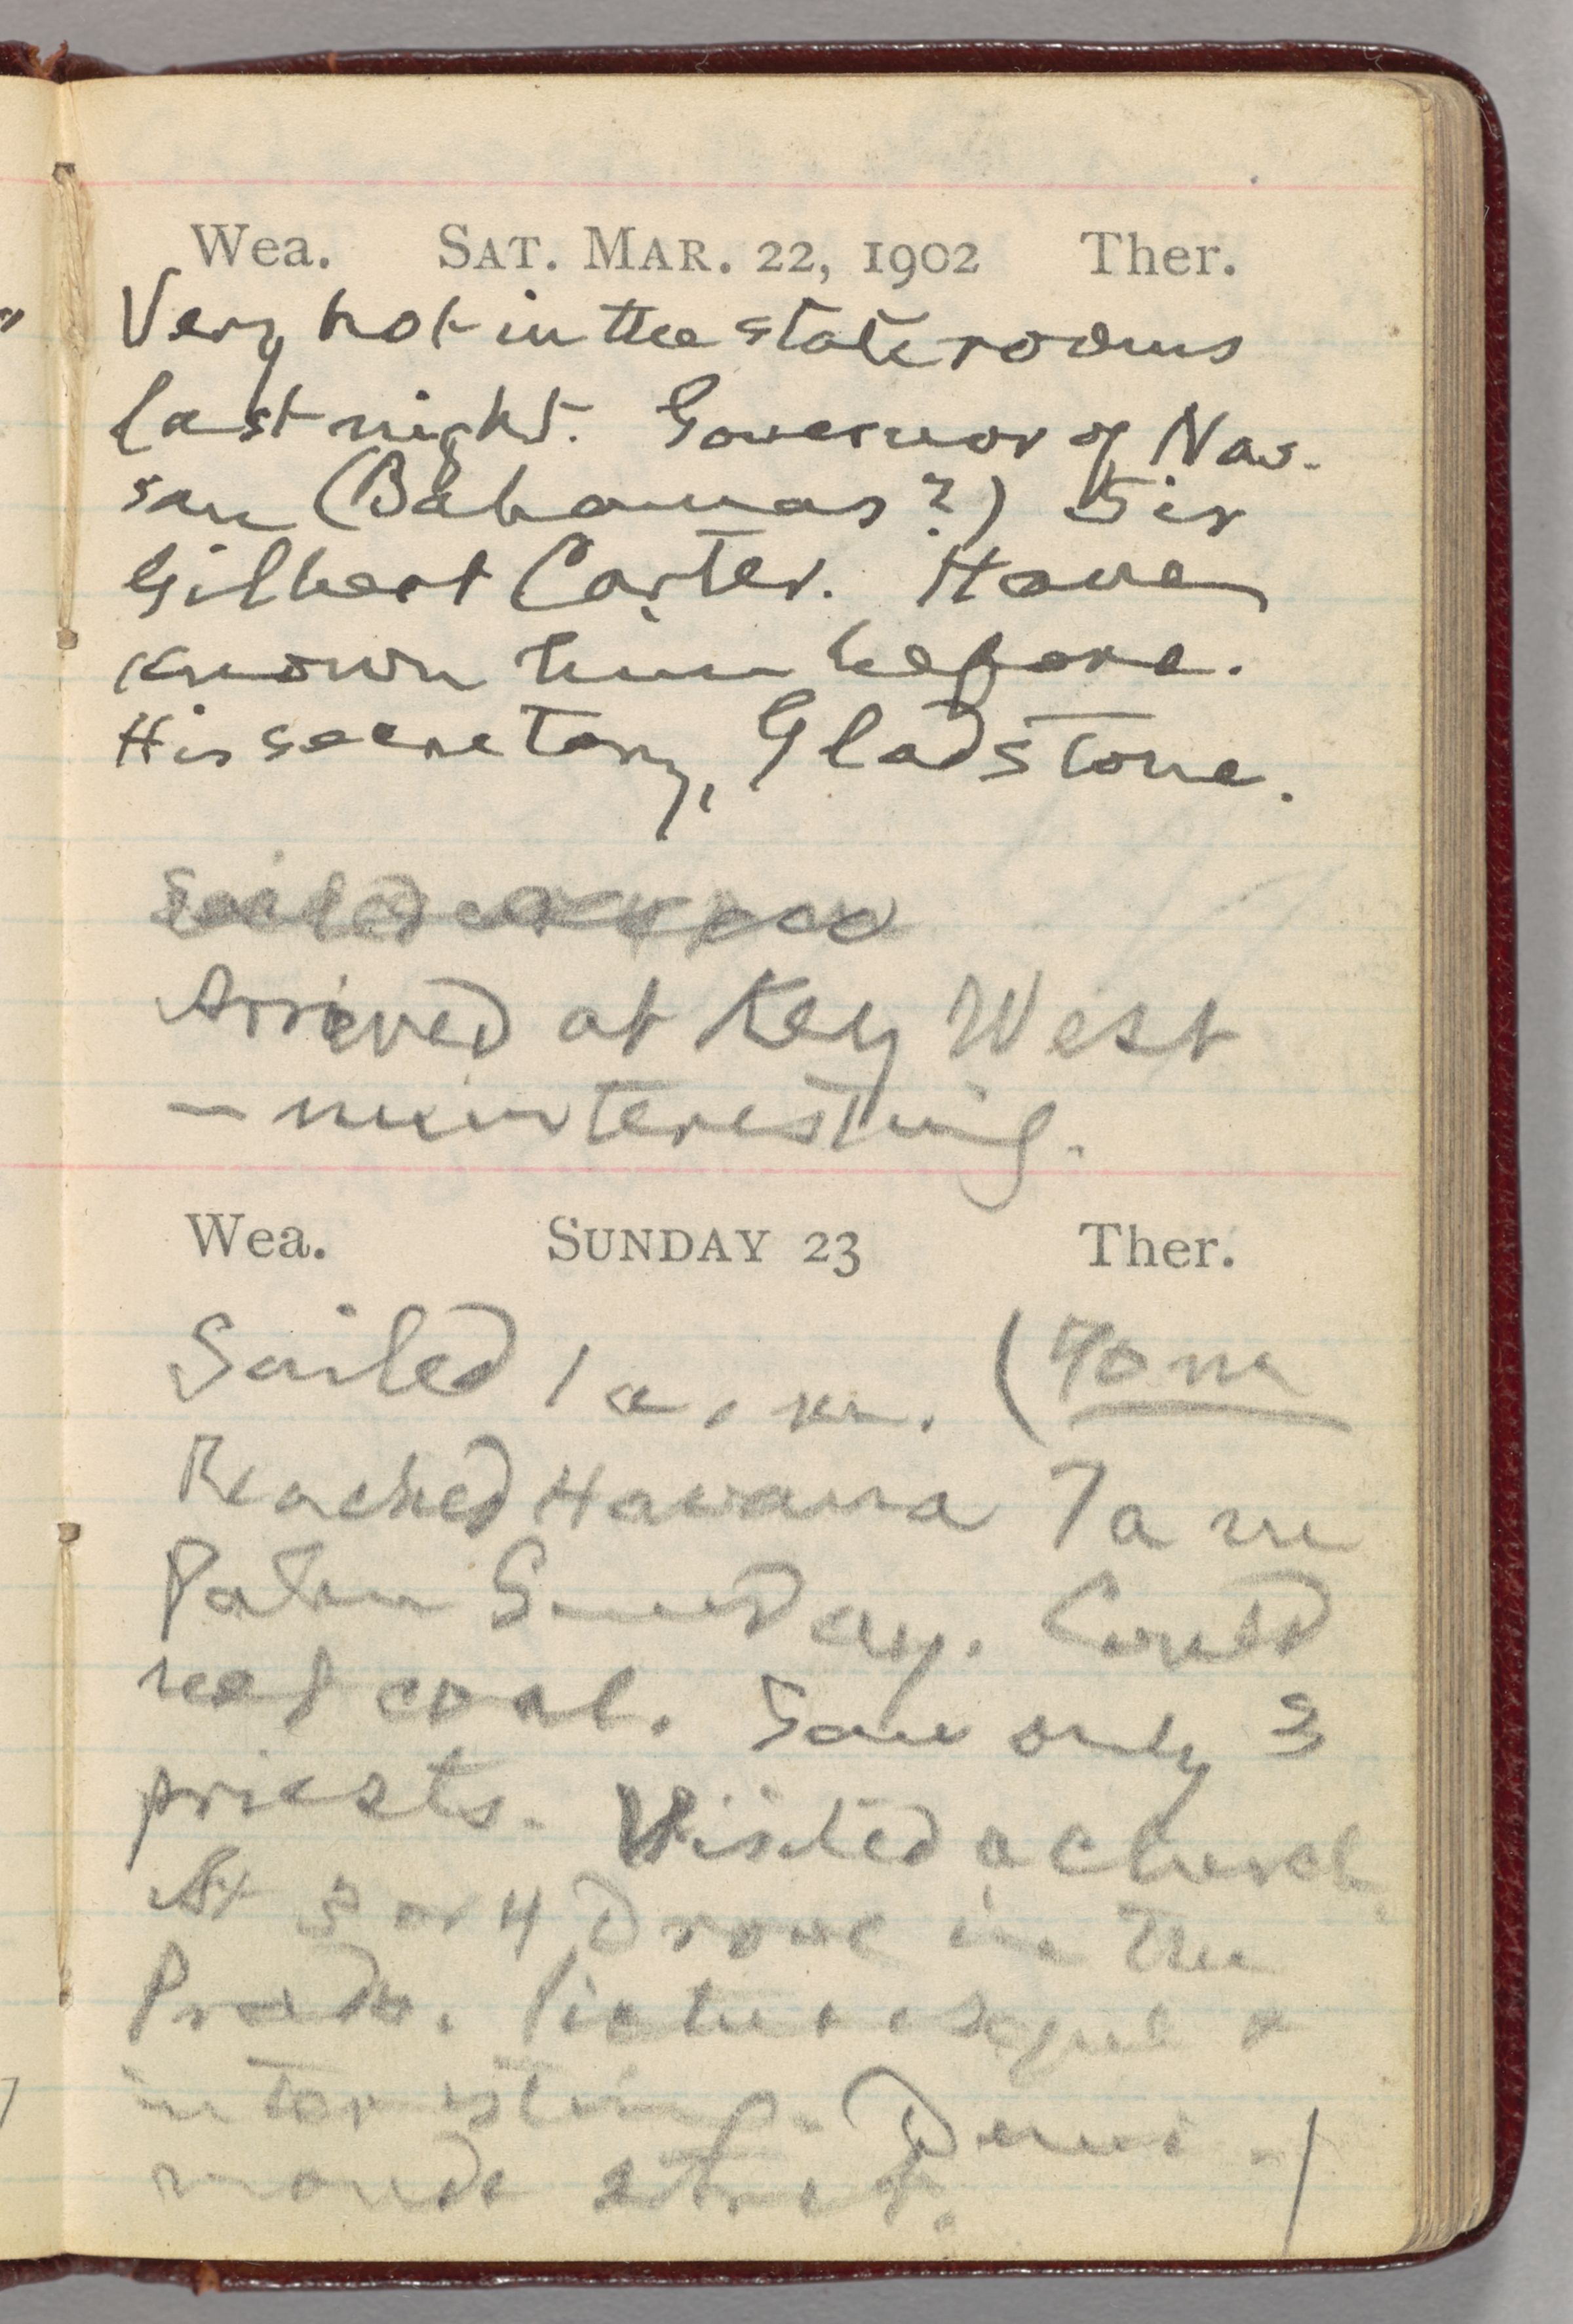 Wea. SAT. MAR. 22, 1902 Ther.
Very hot in the staterooms
last night. Governor of Nas-
sau (Bahamas?) Sir
Gilbert Carter. Have
known him before.
His secretary, Gladstone.
Sailed
Arrived at Key West
— uninteresting.
Wea. SUNDAY 23 Ther.
Sailed 1 a.m. (90 m
Reached Havana 7 a m
Palm Sunday. Could
not coal. Saw only 3
priests. Visited a church.
At 3 or 4 Drove in the
Prado. Picturesque &
interesting. Demi-
monde street.